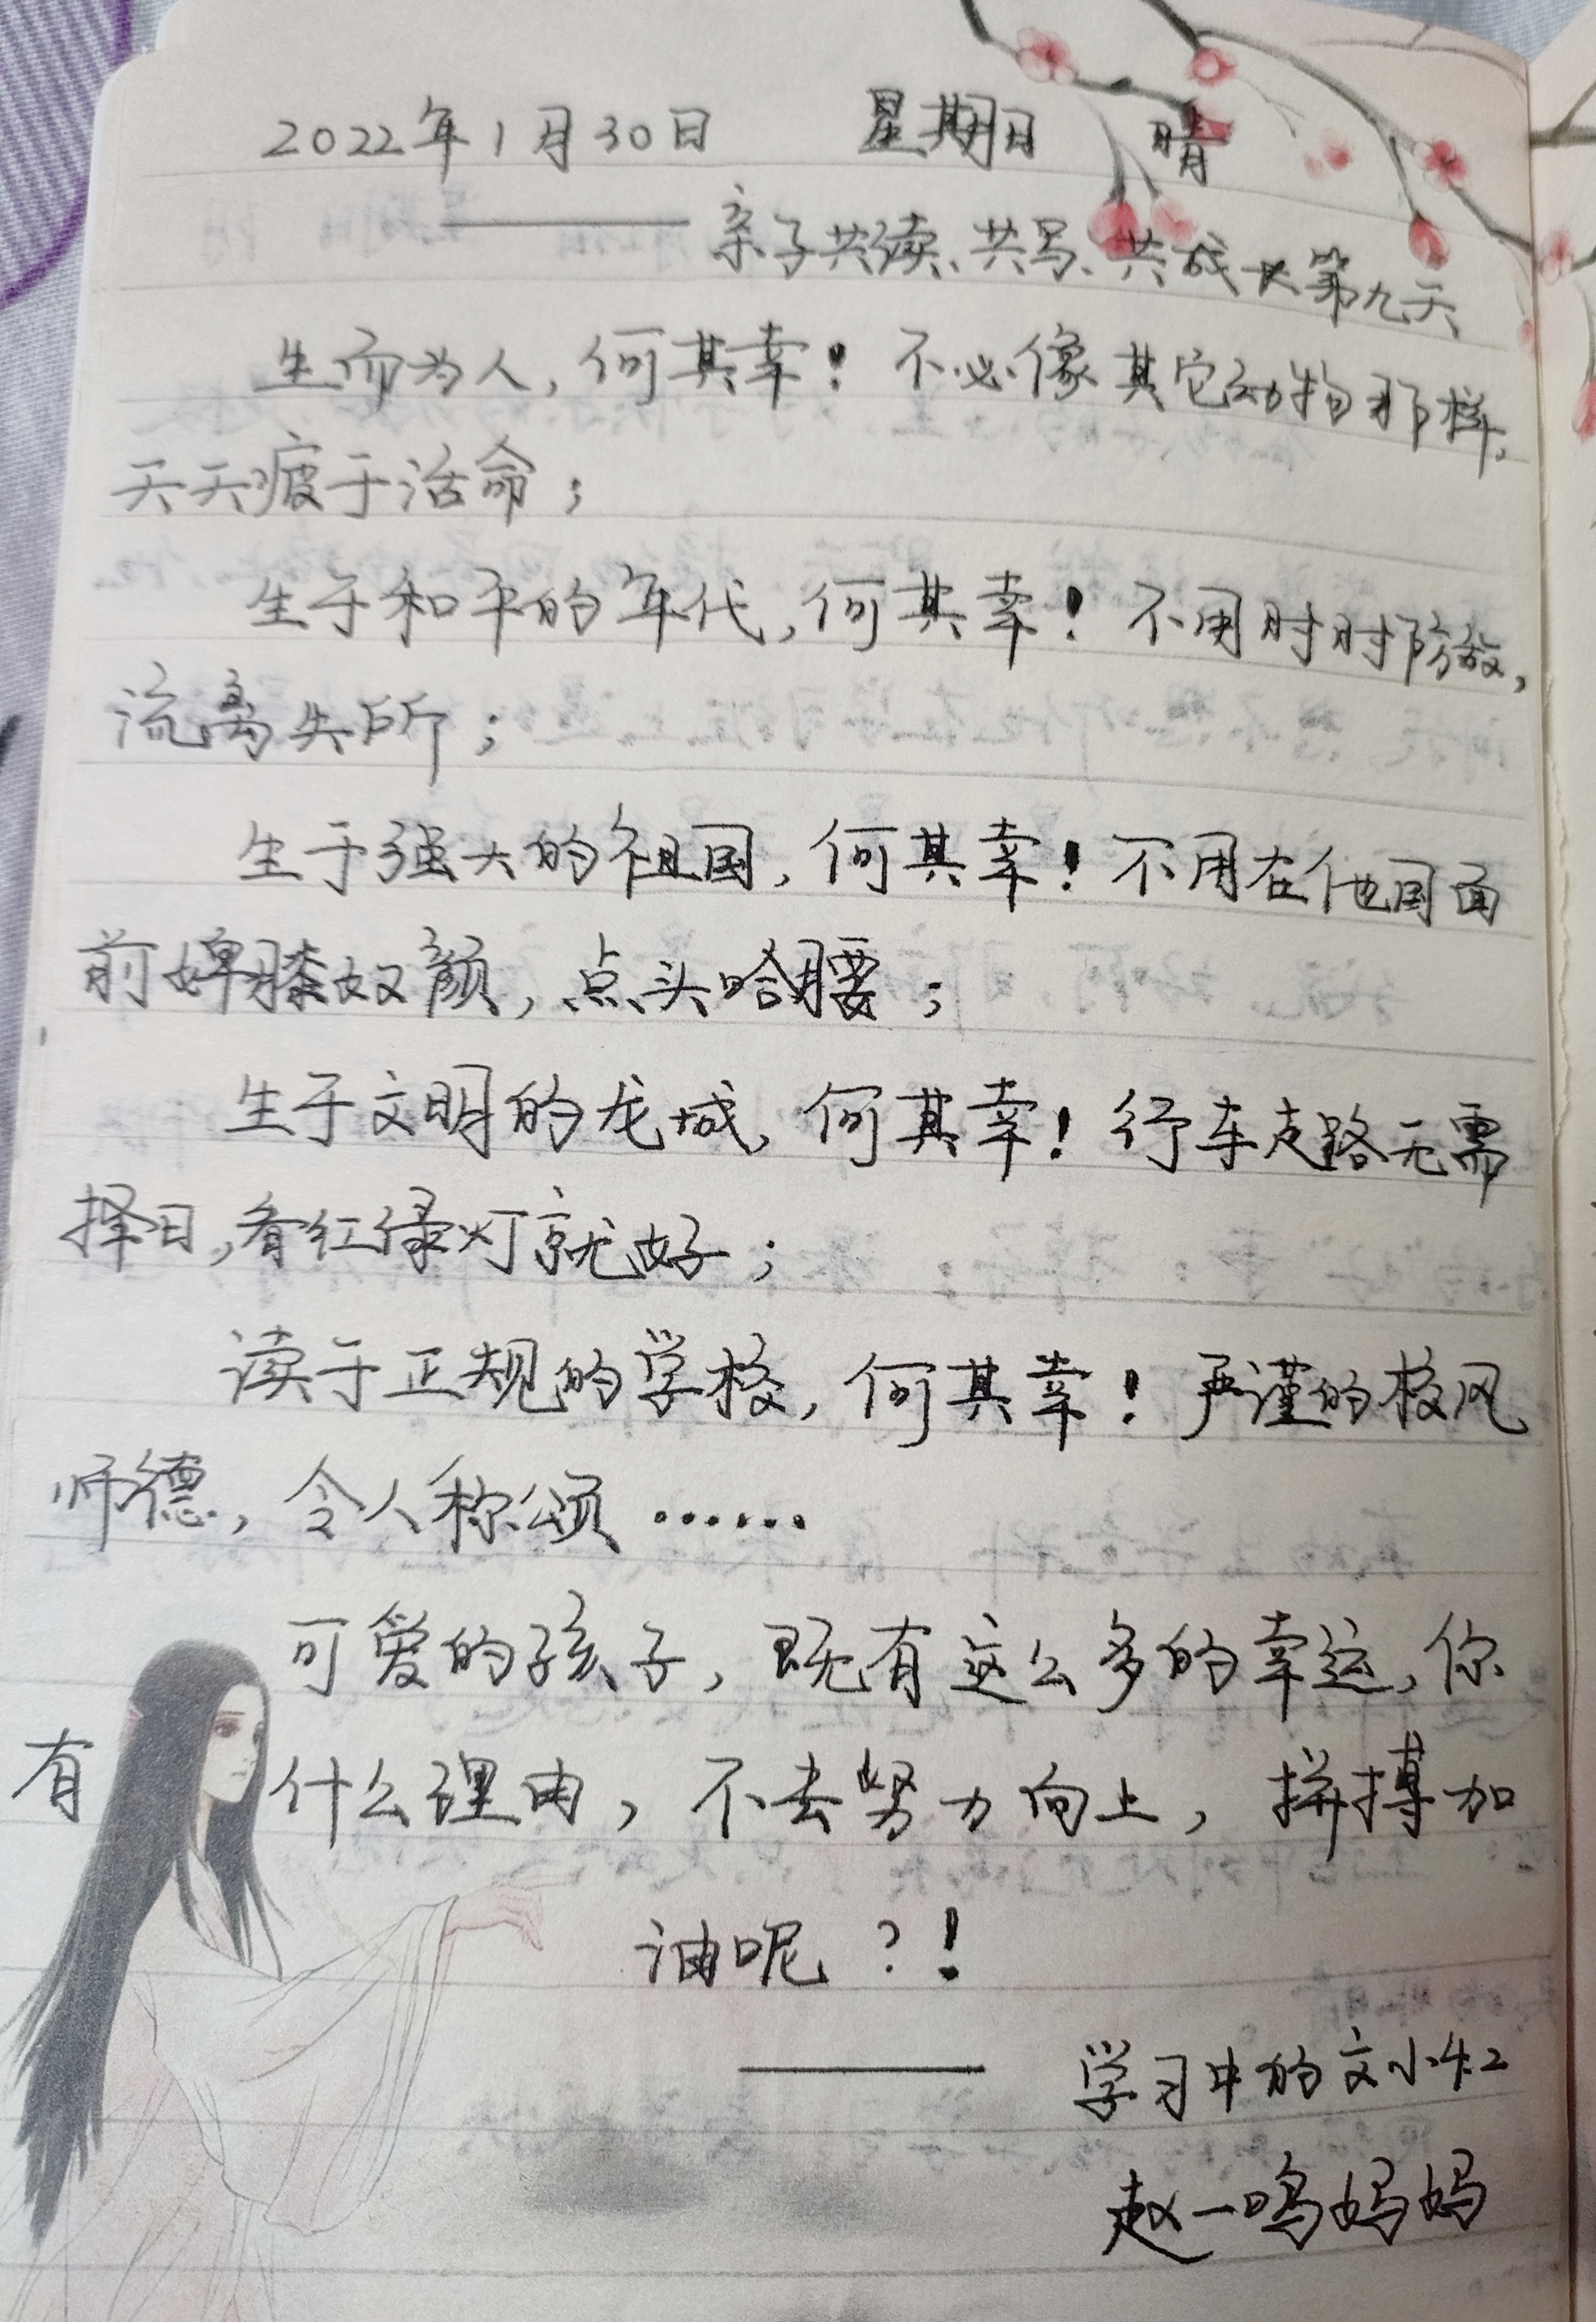 2022年1月30日 星期日 晴
——亲子共读、共写、共成长第九天
生而为人,何其幸!不必像其它动物那样,
天天疲于活命;
生于和平的年代,何其幸!不用时时防敌,
流离失所;
生于强大的祖国,何其幸!不用在他国面
前婢膝奴颜,点头哈腰;
生于文明的龙城,何其幸!行车走路无需
择日,看红绿灯就好;
读于正规的学校,何其幸!严谨的校风
师德,令人称颂……
可爱的孩子,既有这么多的幸运,你
有什么理由,不去努力向上,拼搏加
油呢?!
——学习中的文小红
赵一鸣妈妈